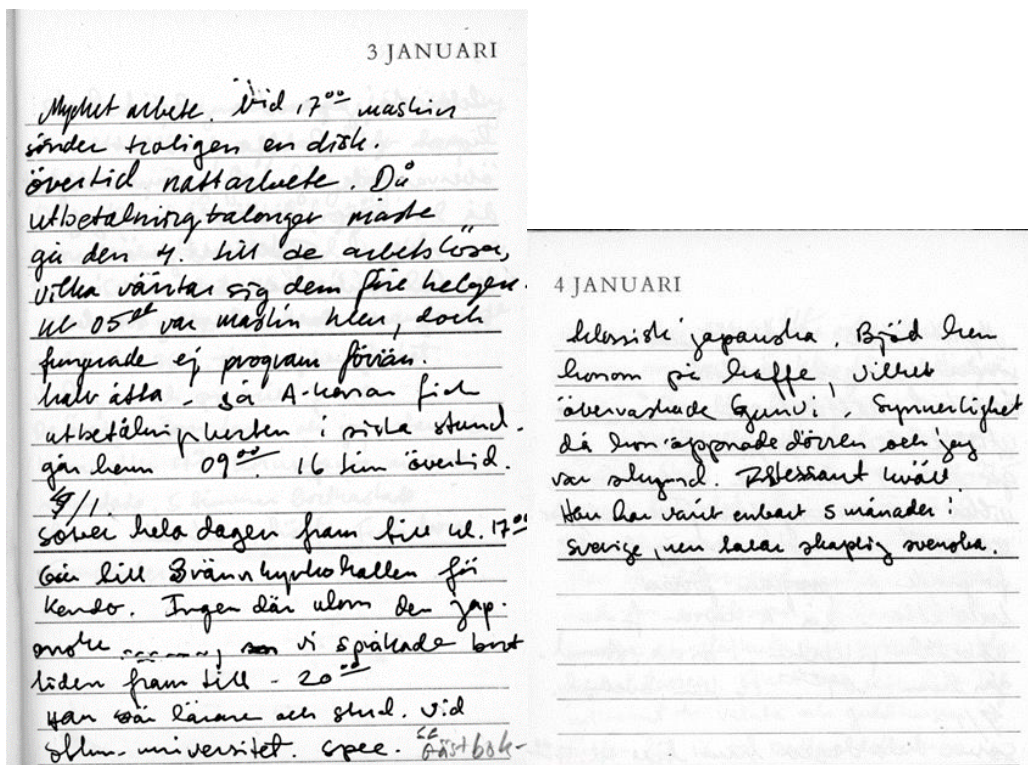 3 JANUARI
Mycket arbete. Vid 17⁰⁰ maskin
sönder troligen en disk.
övertid nattarbete. Då
utbetalningstalonger måste
gå den 4. till de arbetslösa,
vilka väntar sig dem före helgen.
kl 05⁰⁰ var maskin klar, dock
fungerade ej program förrän
halv åtta - så A-kassan fick
utbetalningskorten i sista stund.
går hem 09⁰⁰ 16 tim övertid.
4/1
sover hela dagen fram till kl. 17⁰⁰
Går till Brännkyrkahallen för
Kendo. Ingen där utom den jap.
anske vi språkade bort
tiden fram till - 20⁰⁰
Han är lärare och stud. vid
sthlm. universitet. spec.
4 JANUARI
klassisk japanska. Bjöd hem
honom på kaffe, vilket
överraskade Gunvi. Synnerlighet
då hon öppnade dörren och jag
var skymd. kväll
Han har varit enbart 5 månader i
Sverige, men talar skaplig svenska.